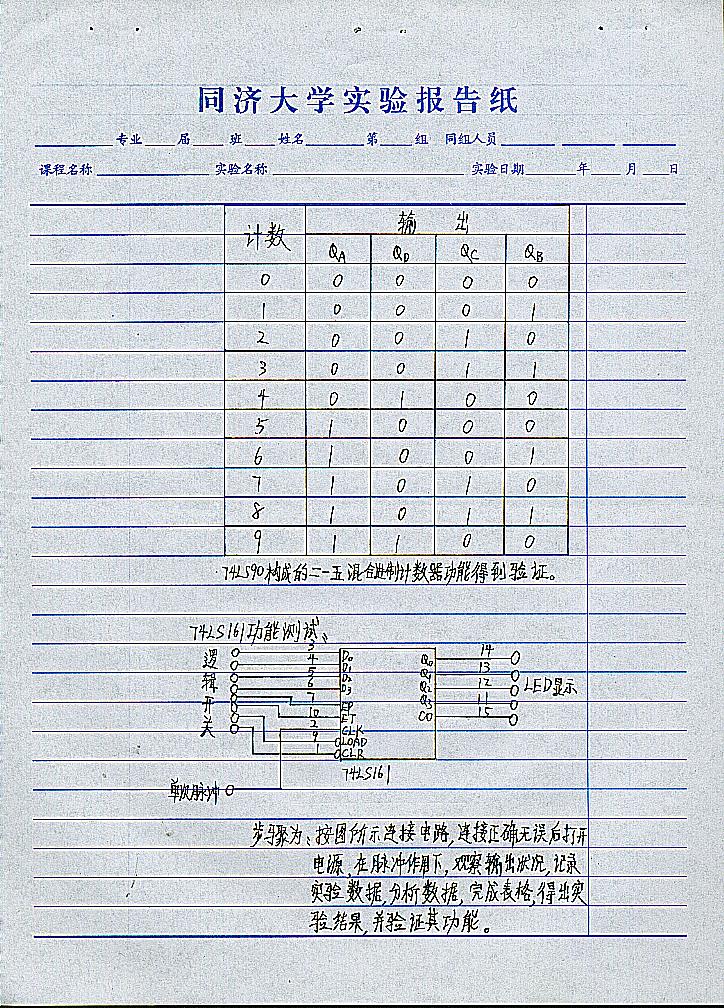 同济大学实验报告纸
专业 届 班 姓名 第 组 同组人员
课程名称 实验名称 实验日期 年 月 日
计数 输 出
QA QD QC QB
0 0 0 0 0
1 0 0 0 1
2 0 0 1 0
3 0 0 1 1
4 0 1 0 0
5 1 0 0 0
6 1 0 0 1
7 1 0 1 0
8 1 0 1 1
9 1 1 0 0
74LS90构成的二一五混合进制计数器功能得到验证。
74LS161功能测试
逻辑开关
3 D0 Q0 14
4 D1 Q1 13
5 D2 Q2 12
6 D3 Q3 11
7 EP CO 15
10 ET
2 CLK
9 LOAD
1 CLR
LED显示
74LS161
单次脉冲
步骤为：按图所示连接电路，连接正确无误后打开
电源，在脉冲作用下，观察输出状况，记录
实验数据，分析数据，完成表格，得出实
验结果，并验证其功能。